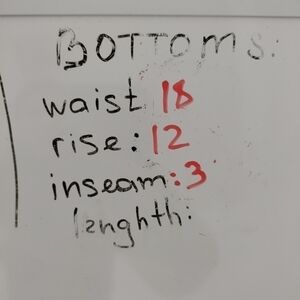 BOTTOMS:
waist 18
rise: 12
inseam: 3
lenghth: